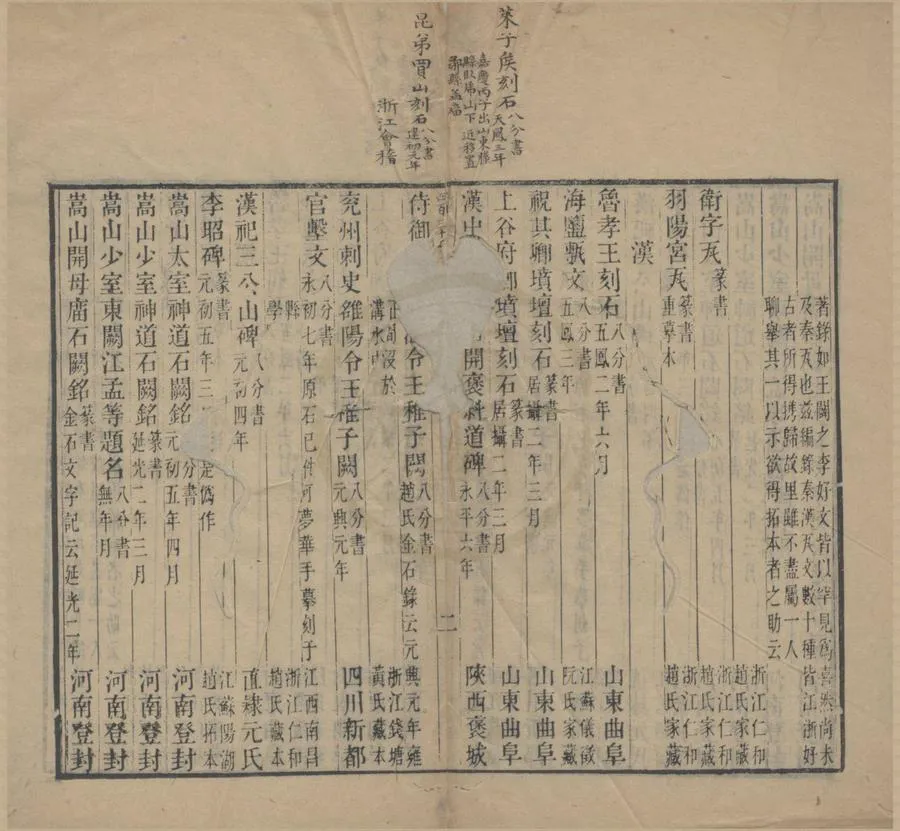 萊子侯刻石 八分書 天鳳三年
嘉慶丙子出山東滕
縣臥虎山下近移置
鄒縣孟廟
昆弟買山刻石 八分書 建初元年
浙江會稽
著錄如王闢之李好文皆以罕見為喜然尚未
及秦瓦也茲編錄秦漢瓦文數十種皆江浙好
古者所得携歸故里雖不盡屬一人
聊舉其一以示欲得拓本者之助云
衛字瓦 篆書 浙江仁和趙氏家藏
羽陽宮瓦 篆書 重摹本 浙江仁和趙氏家藏
漢
魯孝王刻石 八分書 五鳳二年六月 山東曲阜
海鹽甎文 八分書 五鳳三年 江蘇儀徵阮氏家藏
祝其卿墳壇刻石 篆書 居攝二年三月 山東曲阜
上谷府卿墳壇刻石 篆書 居攝二年三月 山東曲阜
漢中 開褒斜道碑 八分書 永平六年 陝西褒城
二
侍御 令王稚子闕 八分書 趙氏金石錄云元興元年雍 正間沒於溝水中 浙江錢塘黃氏藏本
兗州刺史雒陽令王稚子闕 八分書 元興元年 四川新都
官墼文 八分書 永初七年原石已件河夢華手摹刻于縣學 江西南昌 浙江仁和趙氏藏本
漢祀三公山碑 八分書 元初四年 直隸元氏
李昭碑 篆書 元初五年三 是偽作 江蘇陽湖趙氏拓本
嵩山太室神道石闕銘 分書 元初五年四月 河南登封
嵩山少室神道石闕銘 篆書 延光二年三月 河南登封
嵩山少室東闕江孟等題名 八分書 無年月 河南登封
嵩山開母廟石闕銘 篆書 金石文字記云延光二年 河南登封